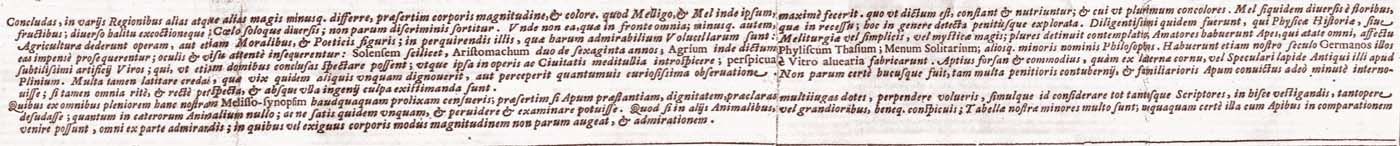 Concludas, in varijs Regionibus alias atque alias magis minusq. differre, præsertim corporis magnitudine, & colore. quod Melligo, & Mel inde ipsum, maximè fecerit. quo vt dictum est, constant & nutriuntur; & cui vt plurimum concolores. Mel siquidem diuersis è floribus,
fructibus; diuerso halitu excoctioneque; Cœlo soloque diuersis; non parum discriminis sortitur. Vnde non ea. quæ in fronte omnia; minusq. autem, quæ in recessu; hoc in genere detecta penitusque explorata. Diligentissimi quidem fuerunt, qui Physicæ Historiæ, siue
Agriculturæ dederunt operam, aut etiam Moralibus, & Poeticis figuris; in perquirendis illis, quæ harum admirabilium Volucellarum sunt: Meliturgia vel simplici, vel mystica magis; plures detinuit contemplatio, Amatores habuerunt Apes, qui ætate omni, affectu
eas impensè prosequerentur; oculis & visu attentè insequerentur: Solensem scilicet, Aristomachum duo de sexaginta annos; Agrium inde dictum Phyliscum Thasium; Menum Solitarium; aliosq. minoris nominis Philosophos. Habuerunt etiam nostro seculo Germanos illos
subtilissimi artificij Viros; qui, vt etiam domibus conclusas spectare possent; vtque ipsa in operis ac Ciuitatis meditullia introspicere; perspicua è Vitro aluearia fabricarunt. Aptius forsan & commodius, quàm ex laterna cornu, vel Speculari lapide Antiqui illi apud
Plinium. Multa tamen latitare credas, quæ vix quidem aliquis vnquam dignouerit, aut perceperit quantumuis curiosissima obseruatione. Non parum certè hucusque fuit, tam multa penitioris contubernij, & familiarioris Apum conuictus adeò minutè interno-
uisse; si tamen omnia ritè, & rectè perspecta, & absque vlla ingenij culpa existimanda sunt.
Quibus ex omnibus pleniorem hanc nostram Melisso-synopsim haudquaquam prolixam censueris; præsertim si Apum præstantiam, dignitatem, præclaras multiiugas dotes, perpendere volueris, simulque id considerare tot tantosque Scriptores, in hisce vestigandis, tantopere
desudasse; quantum in cæterorum Animalium nullo; ac ne satis quidem vnquam, & peruidere & examinare potuisse. Quod si in alijs Animalibus, vel grandioribus, beneq. conspicuis; Tabella nostra minores multo sunt; nequaquam certè illa cum Apibus in comparationem
venire possunt, omni ex parte admirandis; in quibus vel exiguus corporis modus magnitudinem non parum augeat, & admirationem.